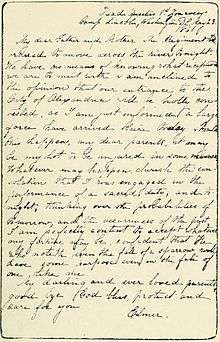 Head Quarters 1st Zouaves
Camp Lincoln, Washington D.C. May 23
1861
My dear Father and Mother, The Regiment is
ordered to move across the river to night.
We have no means of knowing what reception
we are to meet with. I am inclined to
the opinion that our entrance to the
City of Alexandria will be hotly con-
tested, as I am just informed a large
force have arrived there today. Should
this happen, my dear parents, it may
be my lot to be injured in some manner.
Whatever may happen cherish the con-
solation that I was engaged in the
performance of a sacred duty, and to
night, thinking over the probabilities of
tomorrow and the occurrences of the past
I am perfectly content to accept whatever
my fortune may be, confident that He
who noteth even the fall of a sparrow will
have some purpose even in the fate of
one, like me
My darling and ever loved parents
good bye God bless protect and
care for you
Elmer.